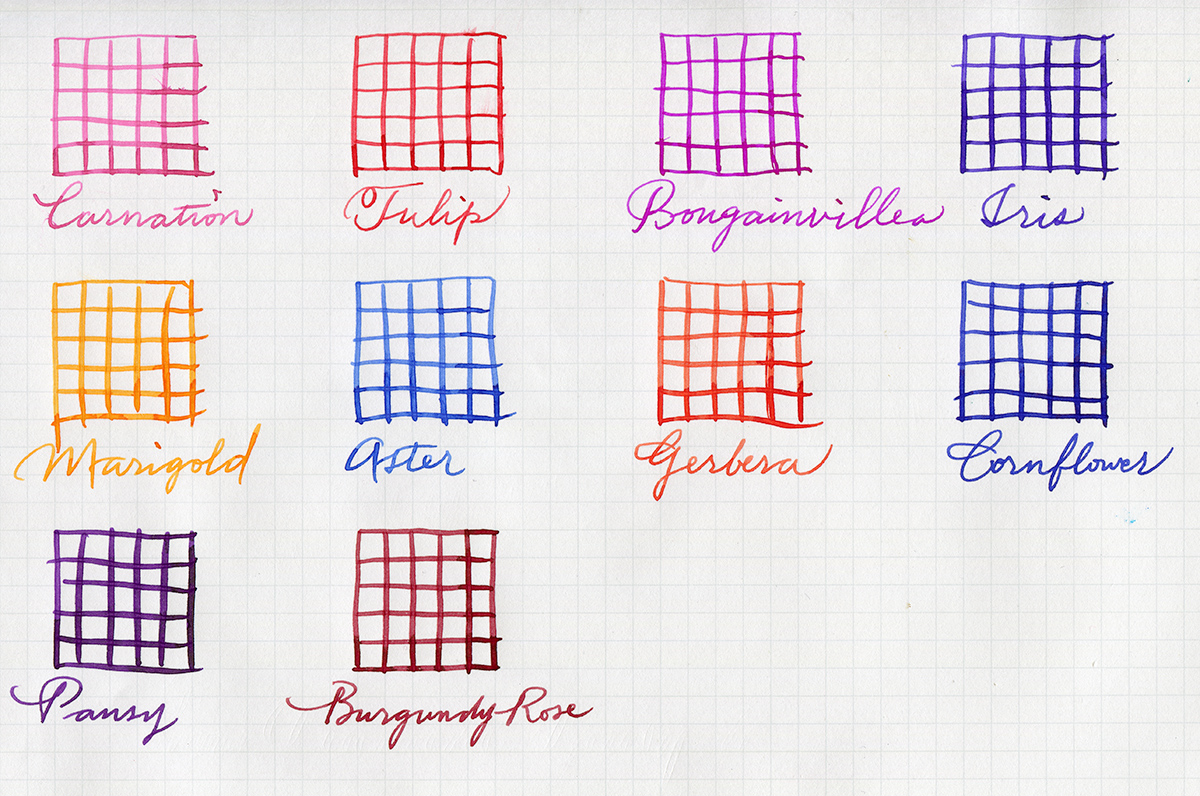 Carnation Tulip Bougainvillea Iris
Marigold Aster Gerbera Cornflower
Pansy Burgundy Rose